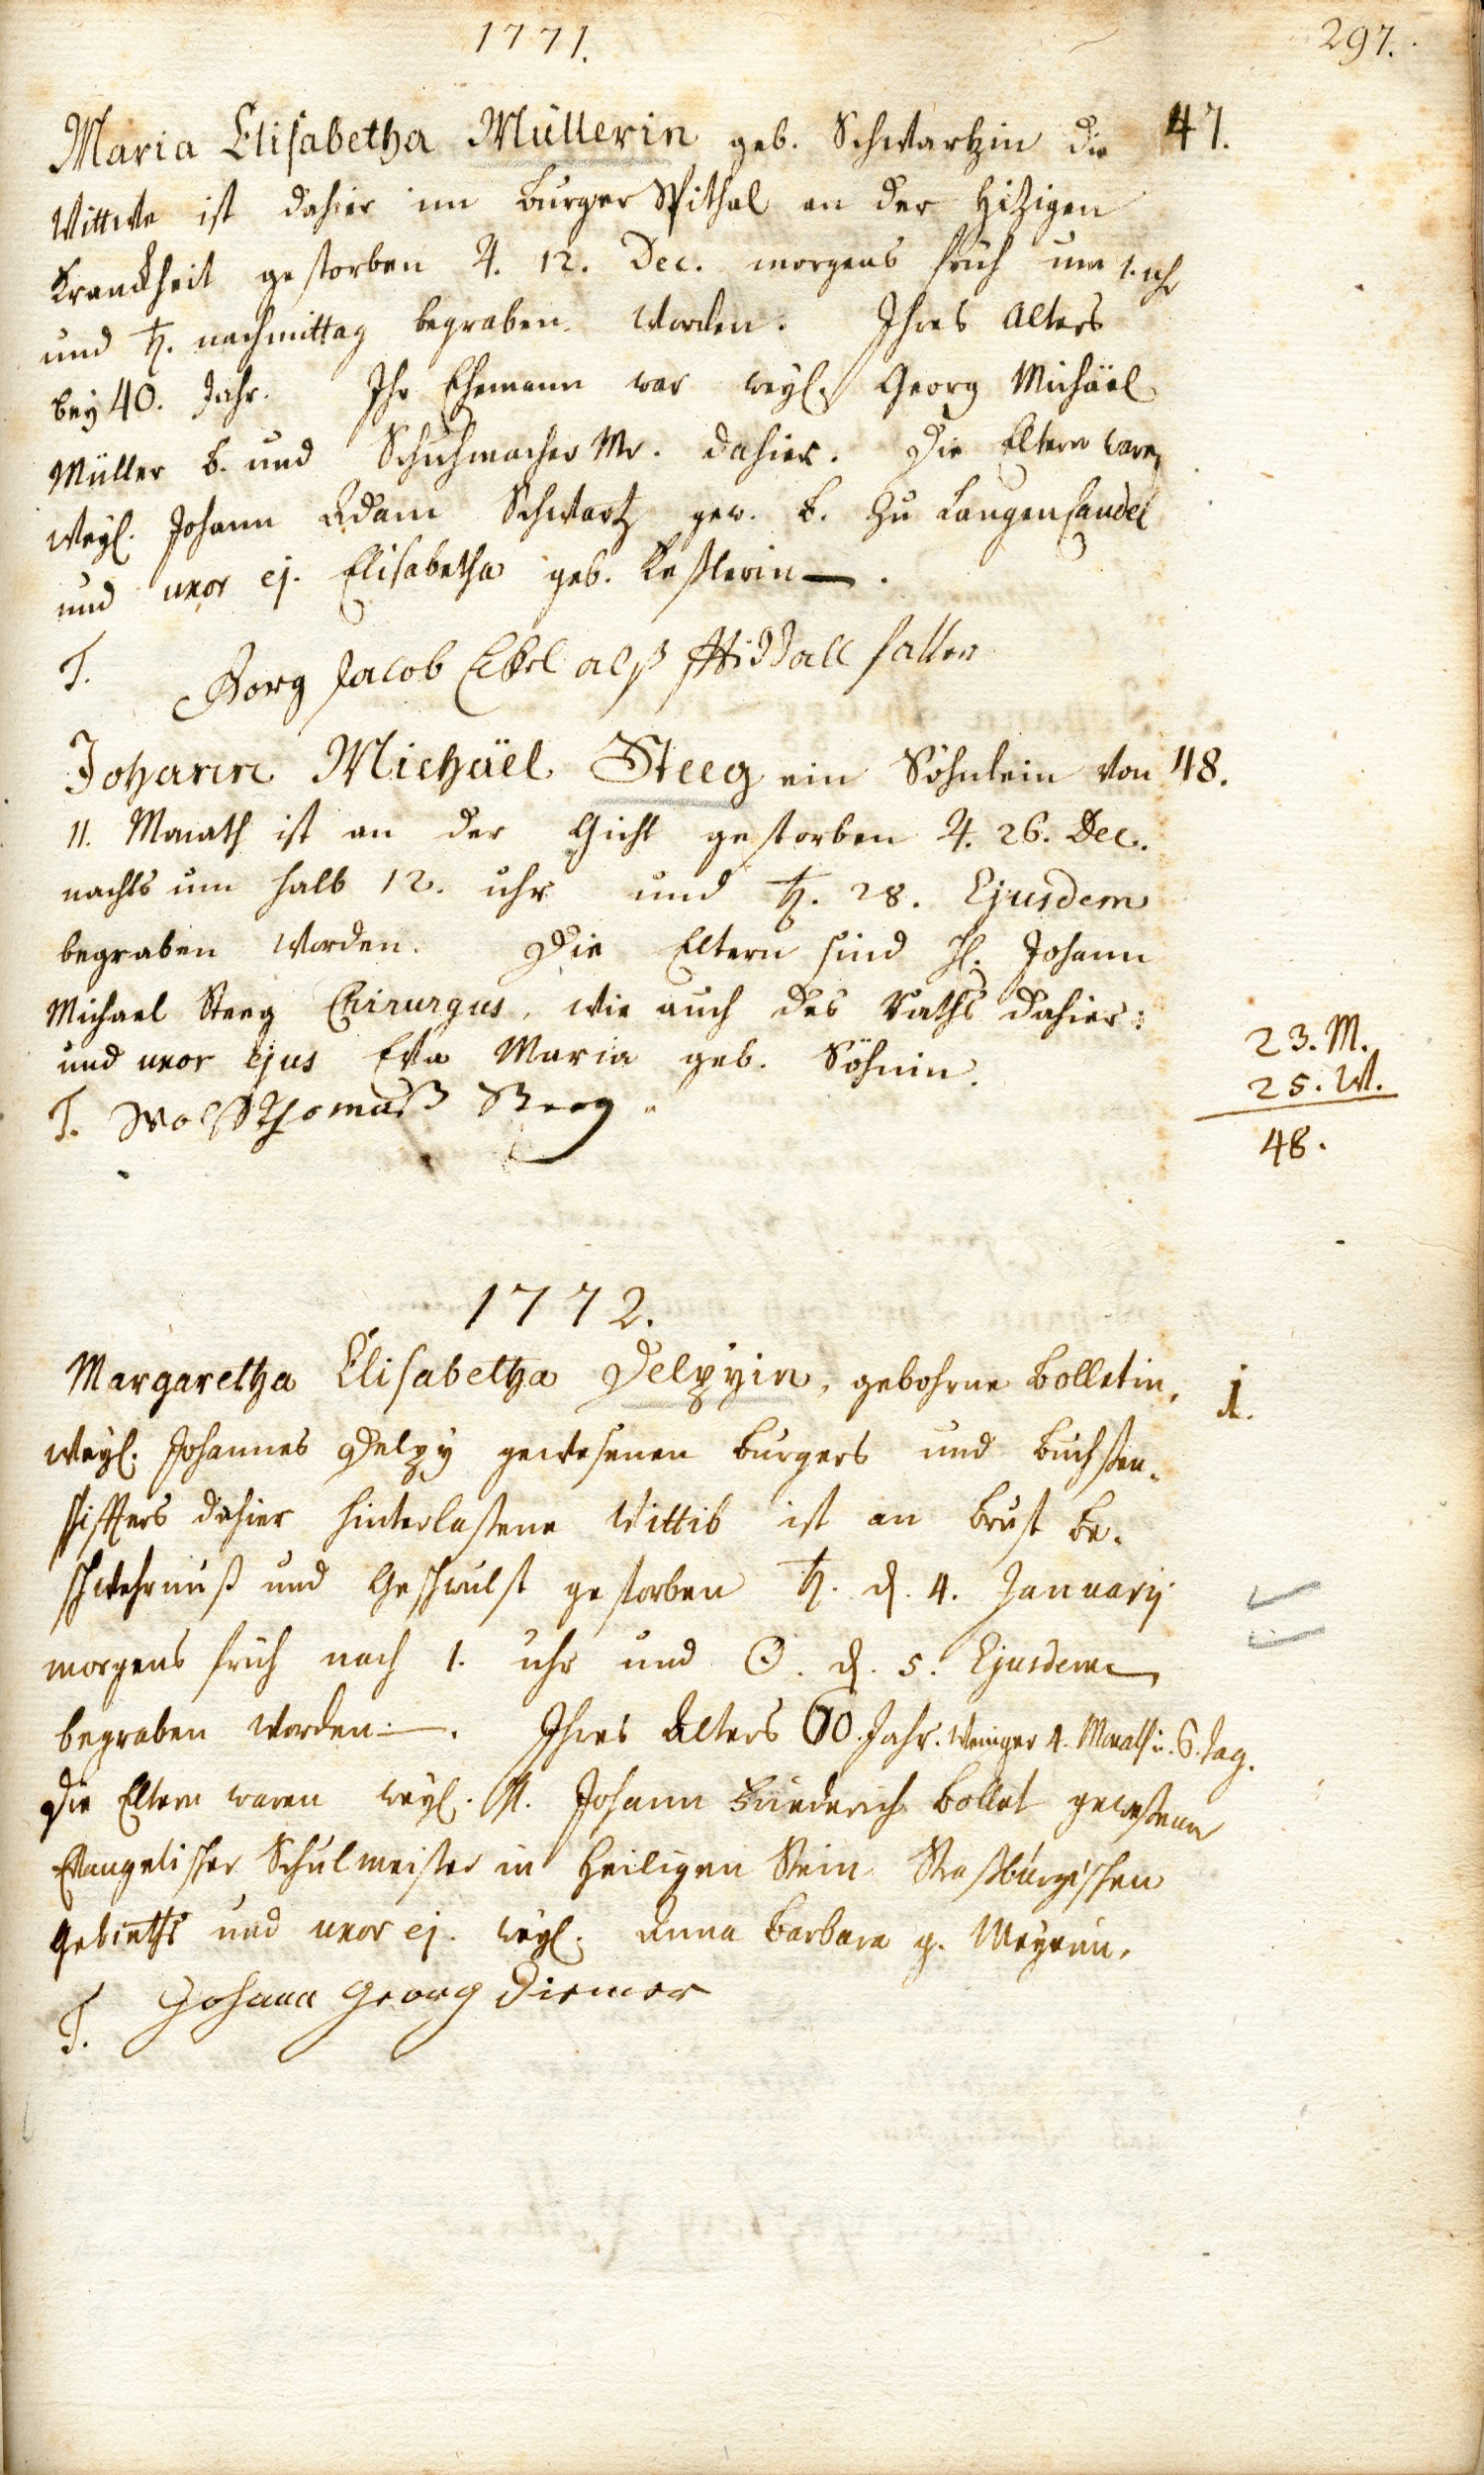 1771.
297.
Maria Elisabetha Müllerin geb. Schwartzin die 47.
Wittwe ist dahier im Burger Spithal an der Hitzigen
Kranckheit gestorben ♃. 12. Dec. morgens früh um 1. uhr
und ♄. nachmittag begraben worden. Ihres Alters
bey 40. Jahr. Ihr Ehemann war weyl. Georg Michäel
Müller b. und Schuhmacher Mr. dahier. Die Eltern waren
weyl. Johann Adam Schwartz gew. b. zu Langen Candel
und uxor ej. Elisabetha geb. Keßlerin —.
T. Georg Jacob Eckel alß
Johann Michäel Steeg ein Söhnlein von 48.
11. Monath ist an der Gicht gestorben ♃. 26. Dec.
nachts um halb 12. uhr und ♄. 28. Ejusdem
begraben worden. Die Eltern sind H. Johann
Michael Steeg Chirurgus, wie auch des Raths dahier:
und uxor ejus Eva Maria geb. Söhnin.
T. Wolff Thomas Steeg.
23. M.
25. W.
48.
1772.
Margaretha Elisabetha Delpyin, gebohrne Bolletin, 1.
weyl. Johannes Delpy gewesenen Burgers und Buchsen-
schiffters dahier hinterlaßene Wittib ist an Brust be-
schwehrnuß und Geschwulst gestorben ♄. d. 4. Januarij
morgens früh nach 1. uhr und ☉. d. 5. Ejusdem
begraben worden —. Ihres Alters 60. Jahr. weniger 4. Monath u. 6. Tag.
Die Eltern waren weyl. H. Johann Friederich Bollet geweßener
Evangelischer Schulmeister in Heiligen Stein Straßburgischen
Gebieths und uxor ej. weyl. Anna Barbara g. Meyerin.
T. Johann Georg Diemer